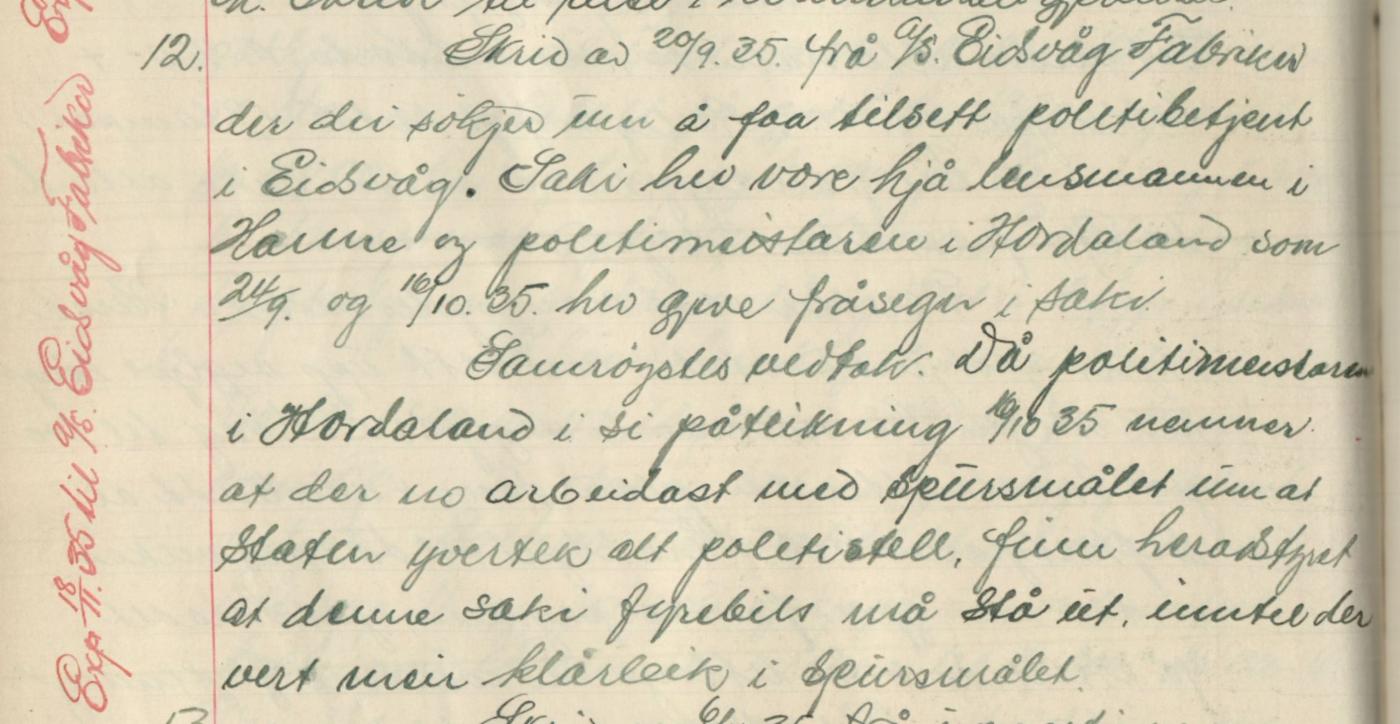 12. Skriv av 20/9.35. frå A/S. Eidsvåg Fabriker
der dei søkjer um å faa tilsett politibetjent
i Eidsvåg. Saki hev vore hjå lensmannen i
Hamre og politimeistaren i Hordaland som
24/9. og 16/10.35. hev gjeve fråsegn i saki.
Samrøystes vedtak. Då politimeistaren
i Hordaland i si påteikning 16/10 35 nemner
at der no arbeidast med spursmålet um at
Staten yvertek alt politistell, finn heradstyret
at denne saki fyrebils må stå ut, inntil der
vert meir klårleik i spursmålet.
13
Exp. 18/11.35 til A/S. Eidsvåg Fabriker